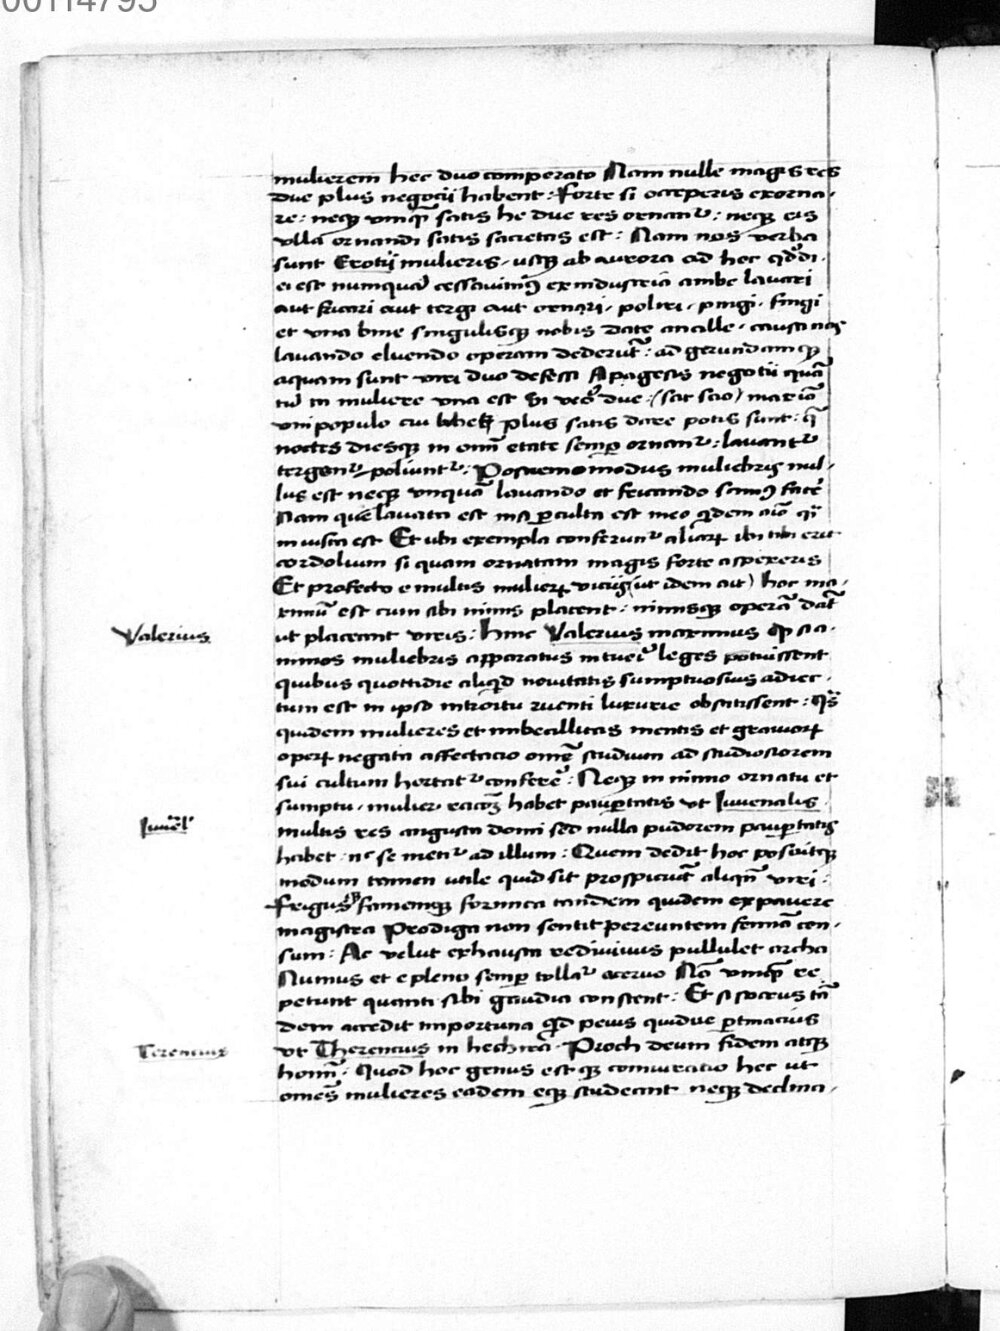 00114795
mulierem hec duo comperato Nam nulle magis res
due plus negocij habent : Forte si occeperis exorna-
re : neqꝫ vmqᷓ satis he due res ornanᷣ : neqꝫ eis
vlla ornandi satis sacietas est : Nam nos verba
sunt Erotij mulieris · usqꝫ ab aurora ad hec qd̓ di-
ei est numquā cessauimꝰ ex industria ambe lauari
aut fricari aut tergi aut ornari · poliri · pingi · fingi
et vna bine singulisqꝫ nobis date ancille · causa nos
lauando eluendo operam dederūt : ad gerundamqꝫ
aquam sunt viri duo defessi Apagesis negotij quā-
tū in muliere vna est Si vero due · (sat scio) maxīo
vni populo cui plus satis dare potis sunt : q̄
noctes diesqꝫ in omī etate semꝑ ornanᷣ : lauantᷣ
tergenᷣ poliuntᷣ : Postremo modus muliebris nul-
lus est neqꝫ vnquā lauando et fricando scimꝰ facē
Nam que lauata est nisi ꝑculta est meo qͥdem aīo qͣsi
inuista est Et ubi exempla conferunᷣ aliarꝝ ibi tibi erit
cordolium si quam ornatam magis forte aspexeris
Et profecto e multis mulierꝝ vicijs (ut idem ait) hoc ma-
ximū est cum sibi nimis placent : nimisqꝫ operā dāt
ut placeant viris : Hinc Valerius maximus qꝑ si a-
nimos muliebris apparatus intueri leges potuissent
quibus quottidie aliqͥd nouitatis sumptuosius adiec-
tum est in ipso introitu ruenti luxurie obstitissent : Qͣs
quidem mulieres et imbecillitas mentis et grauiorꝝ
operꝝ negata affectacio omē studium ad studiosiorem
sui cultum hortatᷣ conferē : Neqꝫ in nimio ornatu et
sumptu · mulier racōꝫ habet pauꝑtatis vt Iuuenalis
multis res angusta domi sed nulla pudorem pauꝑtatis
habet : nec se metiᷣ ad illum : Quem dedit hec posuitqꝫ
modum tamen utile quid sit prospiciūt aliqn̄ viri :
Frigusqꝫ famemqꝫ formica tandem quidem expauere
magistra Prodiga non sentit pereuntem femīa cen-
sum : Ac velut exhausta rediuiuus pullulet archa
Numus et e pleno semꝑ tollaᷣ aceruo Nō vmqᷓ re
petunt quanti sibi gaudia constent : Et si socrus tā-
dem accedit importuna qͥd peius quidue ꝑtinacius
vt Therencius in hechira · Proch deum fidem atqꝫ
homī · Quod hoc genus est qꝫ coniuratio hec ut
omēs mulieres eadem eqꝫ studeant neqꝫ declina-
Valerius
Iuuēl'
Terencius